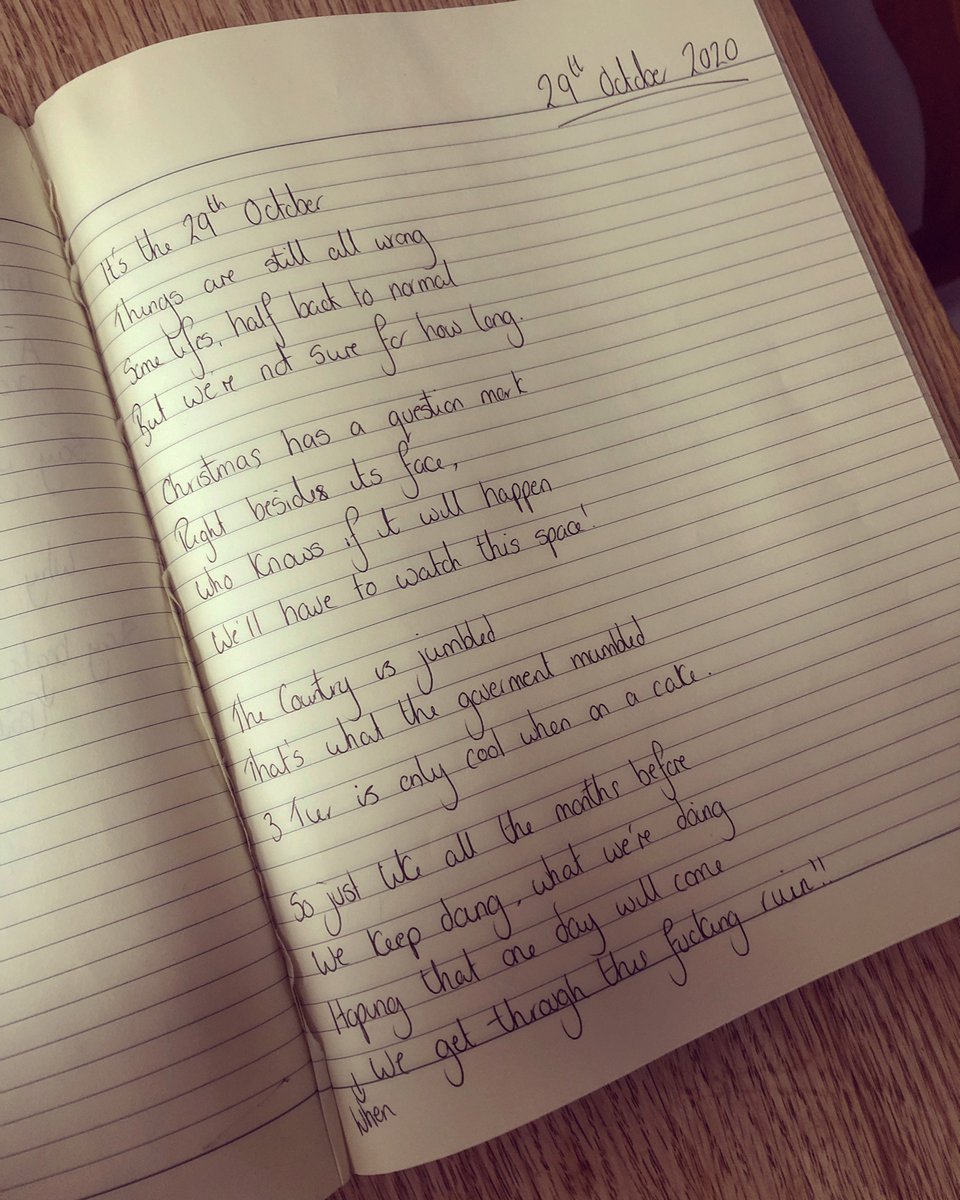 29th October 2020
It's the 29th October
Things are still all wrong
Some lifes, half back to normal
But we're not sure for how long.
Christmas has a question mark
Right besides its face,
Who knows if it will happen
We'll have to watch this space!
The Country is jumbled
That's what the goverment mumbled
3 Tier is only cool when on a cake.
So just like all the months before
We keep doing, what we're doing
Hoping that one day will come
We get through this fucking ruin!!
When